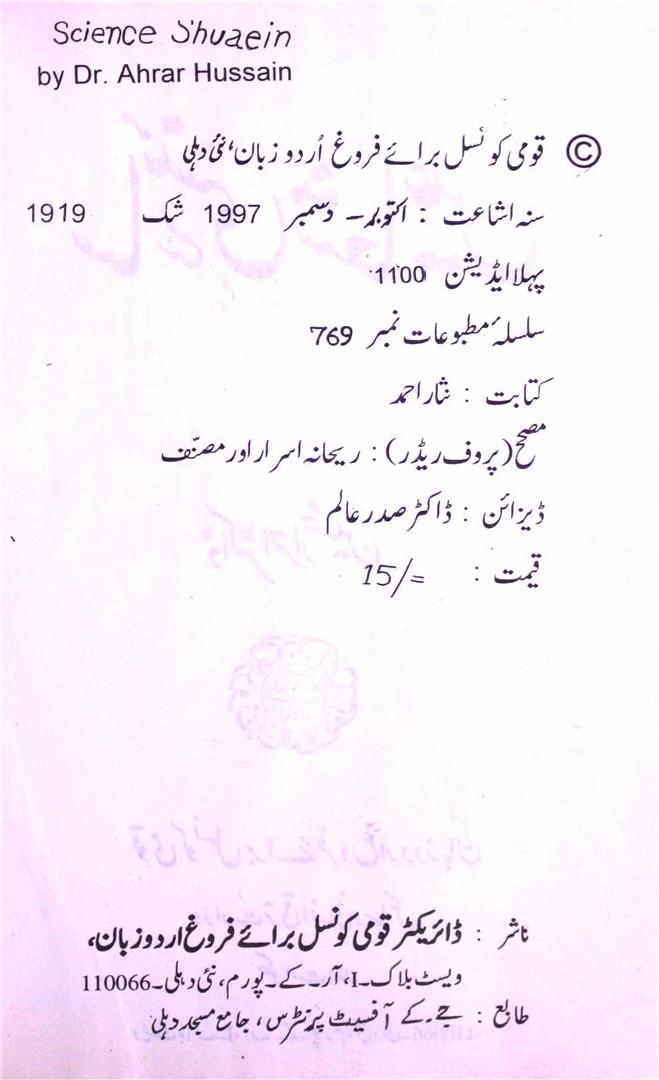 Science Shuaein
by Dr. Ahrar Hussain
© قومی کونسل برائے فروغ اُردو زبان، نئی دہلی
سنہ اشاعت : اکتوبر۔ دسمبر 1997 شک 1919
پہلا ایڈیشن 1100
سلسلۂ مطبوعات نمبر 769
کتابت : نثار احمد
مصحح (پروف ریڈر) : ریحانہ اسرار اور مصنّف
ڈیزائن : ڈاکٹر صدر عالم
قیمت : 15/=
ناشر : ڈائریکٹر قومی کونسل برائے فروغ اردو زبان،
ویسٹ بلاک۔I، آر۔کے۔پورم، نئی دہلی۔110066
طابع : جے۔کے آفسیٹ پرنٹرس، جامع مسجد دہلی